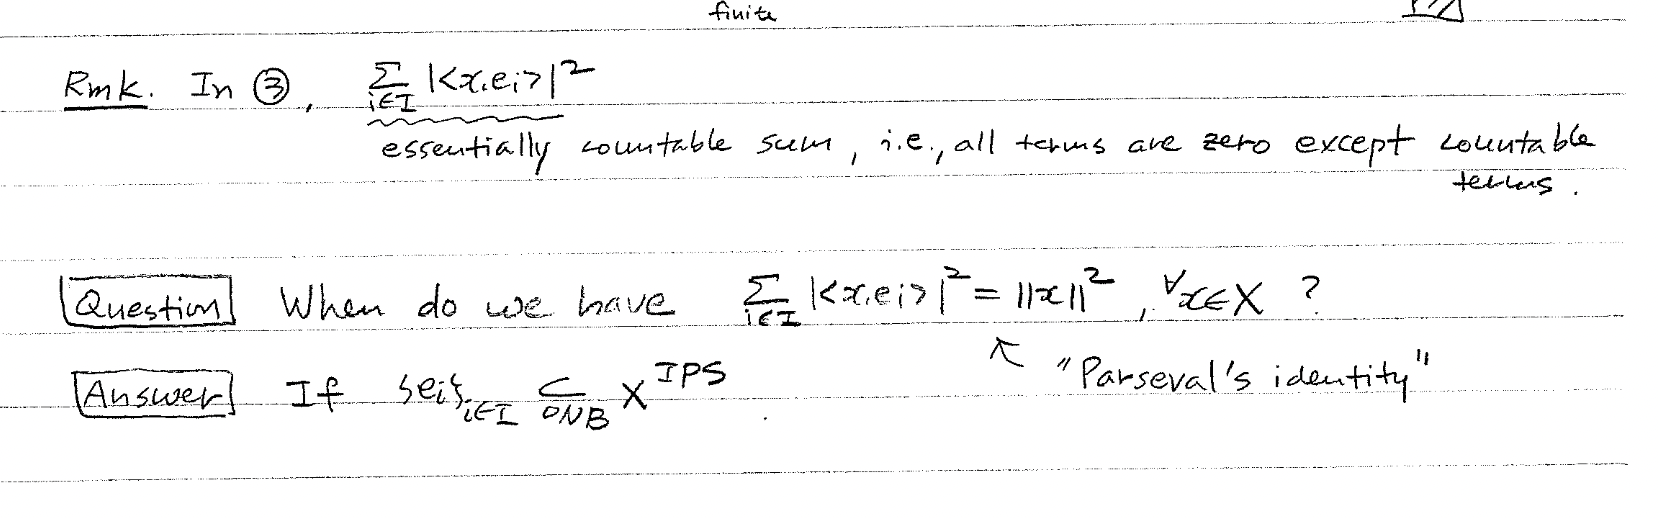 finite
Rmk. In ③, Σ_{i∈I} |<x,e_i>|²
essentially countable sum, i.e., all terms are zero except countable
terms.
Question When do we have Σ_{i∈I} |<x,e_i>|² = ||x||², ∀x∈X ?
↖ "Parseval's identity"
Answer If {e_i}_{i∈I} ⊂_{ONB} X^{IPS}.